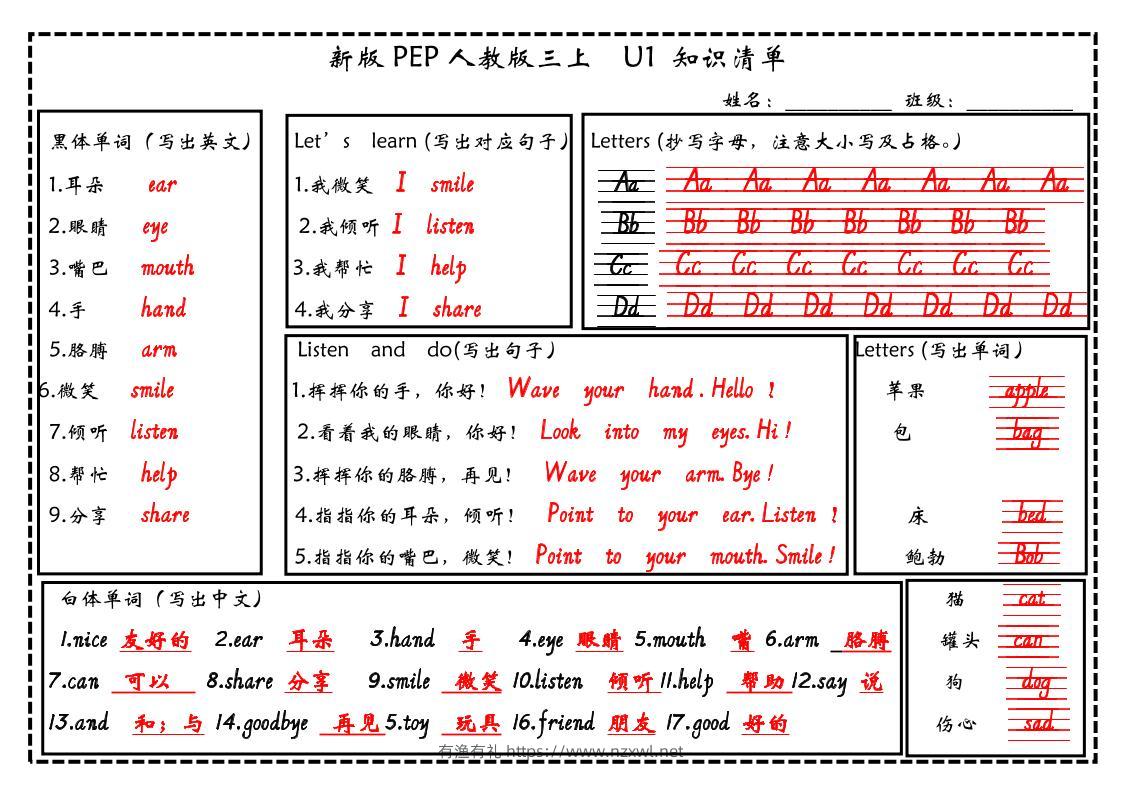 新版 PEP 人教版三上 U1 知识清单
姓名：__________ 班级：__________
黑体单词（写出英文）
1.耳朵 ear
2.眼睛 eye
3.嘴巴 mouth
4.手 hand
5.胳膊 arm
6.微笑 smile
7.倾听 listen
8.帮忙 help
9.分享 share
Let’s learn (写出对应句子)
1.我微笑 I smile
2.我倾听 I listen
3.我帮忙 I help
4.我分享 I share
Letters (抄写字母，注意大小写及占格。)
Aa Aa Aa Aa Aa Aa Aa Aa
Bb Bb Bb Bb Bb Bb Bb Bb
Cc Cc Cc Cc Cc Cc Cc Cc
Dd Dd Dd Dd Dd Dd Dd Dd
Listen and do(写出句子)
1.挥挥你的手，你好！ Wave your hand. Hello !
2.看着我的眼睛，你好！ Look into my eyes. Hi !
3.挥挥你的胳膊，再见！ Wave your arm. Bye !
4.指指你的耳朵，倾听！ Point to your ear. Listen !
5.指指你的嘴巴，微笑！ Point to your mouth. Smile !
Letters (写出单词)
苹果 apple
包 bag
床 bed
鲍勃 Bob
猫 cat
罐头 can
狗 dog
伤心 sad
白体单词（写出中文）
1.nice 友好的 2.ear 耳朵 3.hand 手 4.eye 眼睛 5.mouth 嘴 6.arm _胳膊
7.can 可以 8.share 分享 9.smile 微笑 10.listen 倾听 11.help 帮助 12.say 说
13.and 和；与 14.goodbye 再见 5.toy 玩具 16.friend 朋友 17.good 好的
有渔有礼 https://www.nzxwl.net